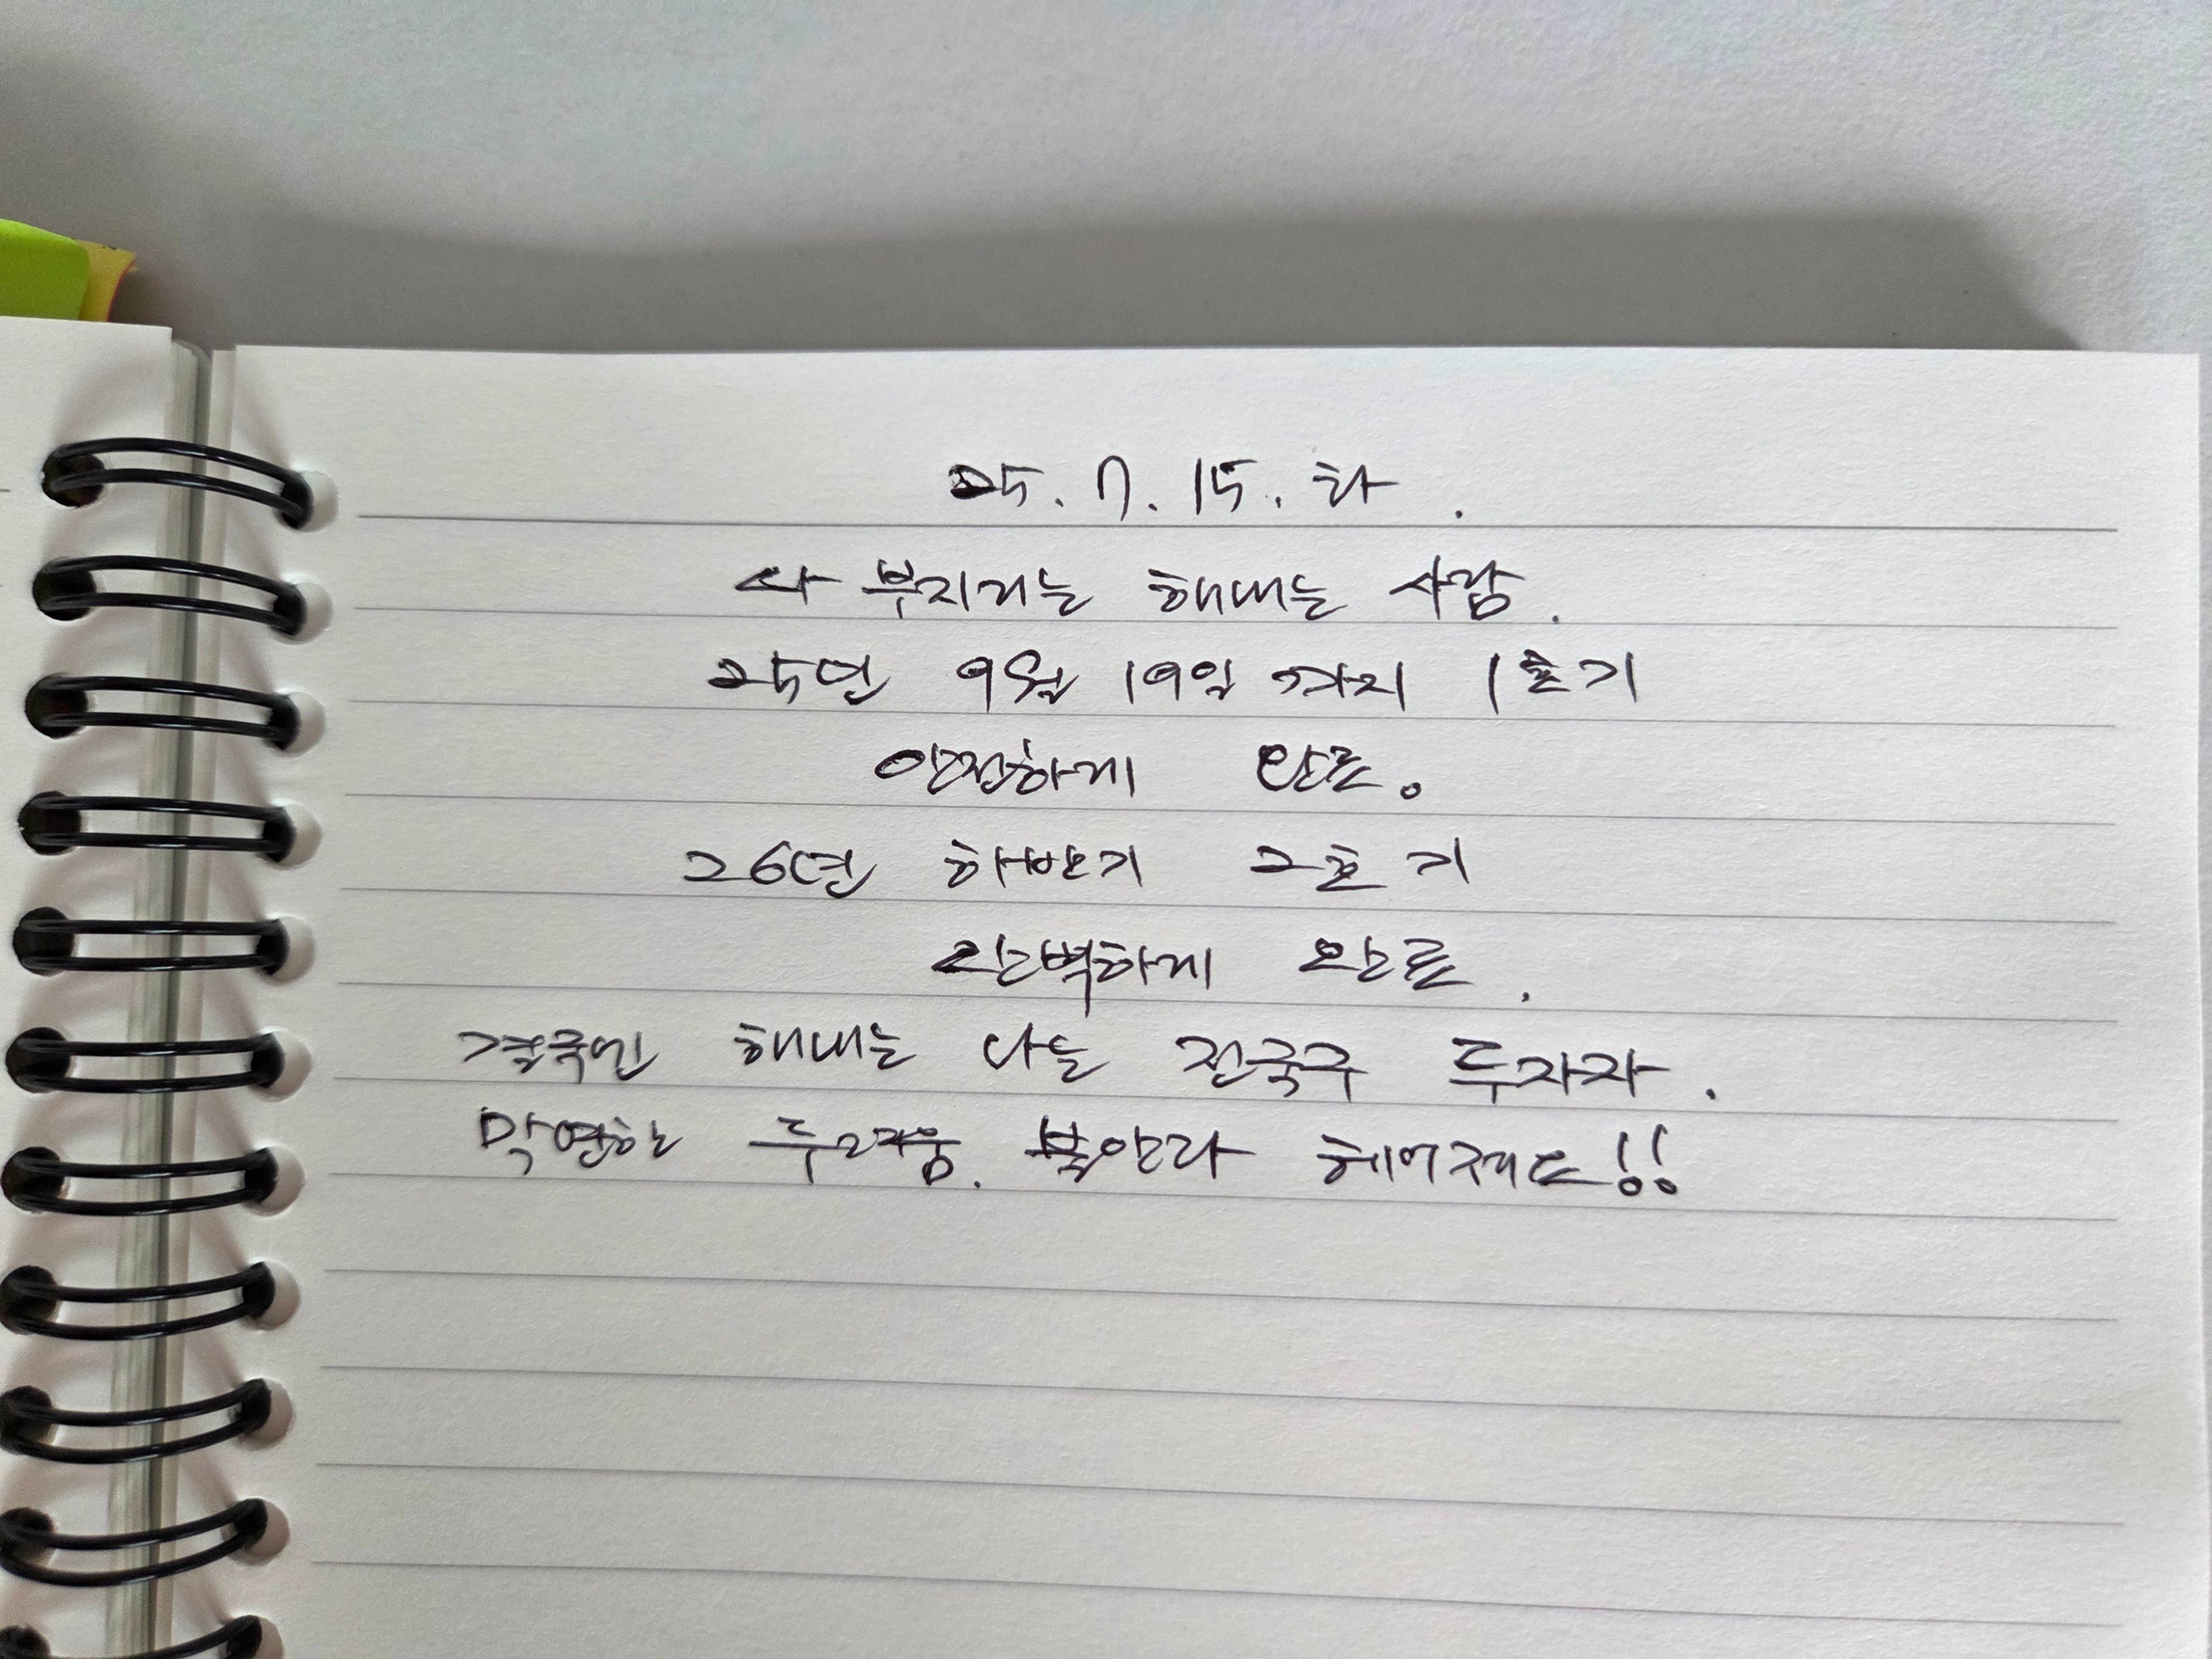 25. 7. 15. 화.
나 부지러는 해내는 사람.
25년 9월 19일 까지 1호기
안전하게 완료.
26년 하반기 2호기
완벽하게 완료.
결국엔 해내는 나는 전국구 투자자.
막연한 두려움. 불안과 헤어져도!!